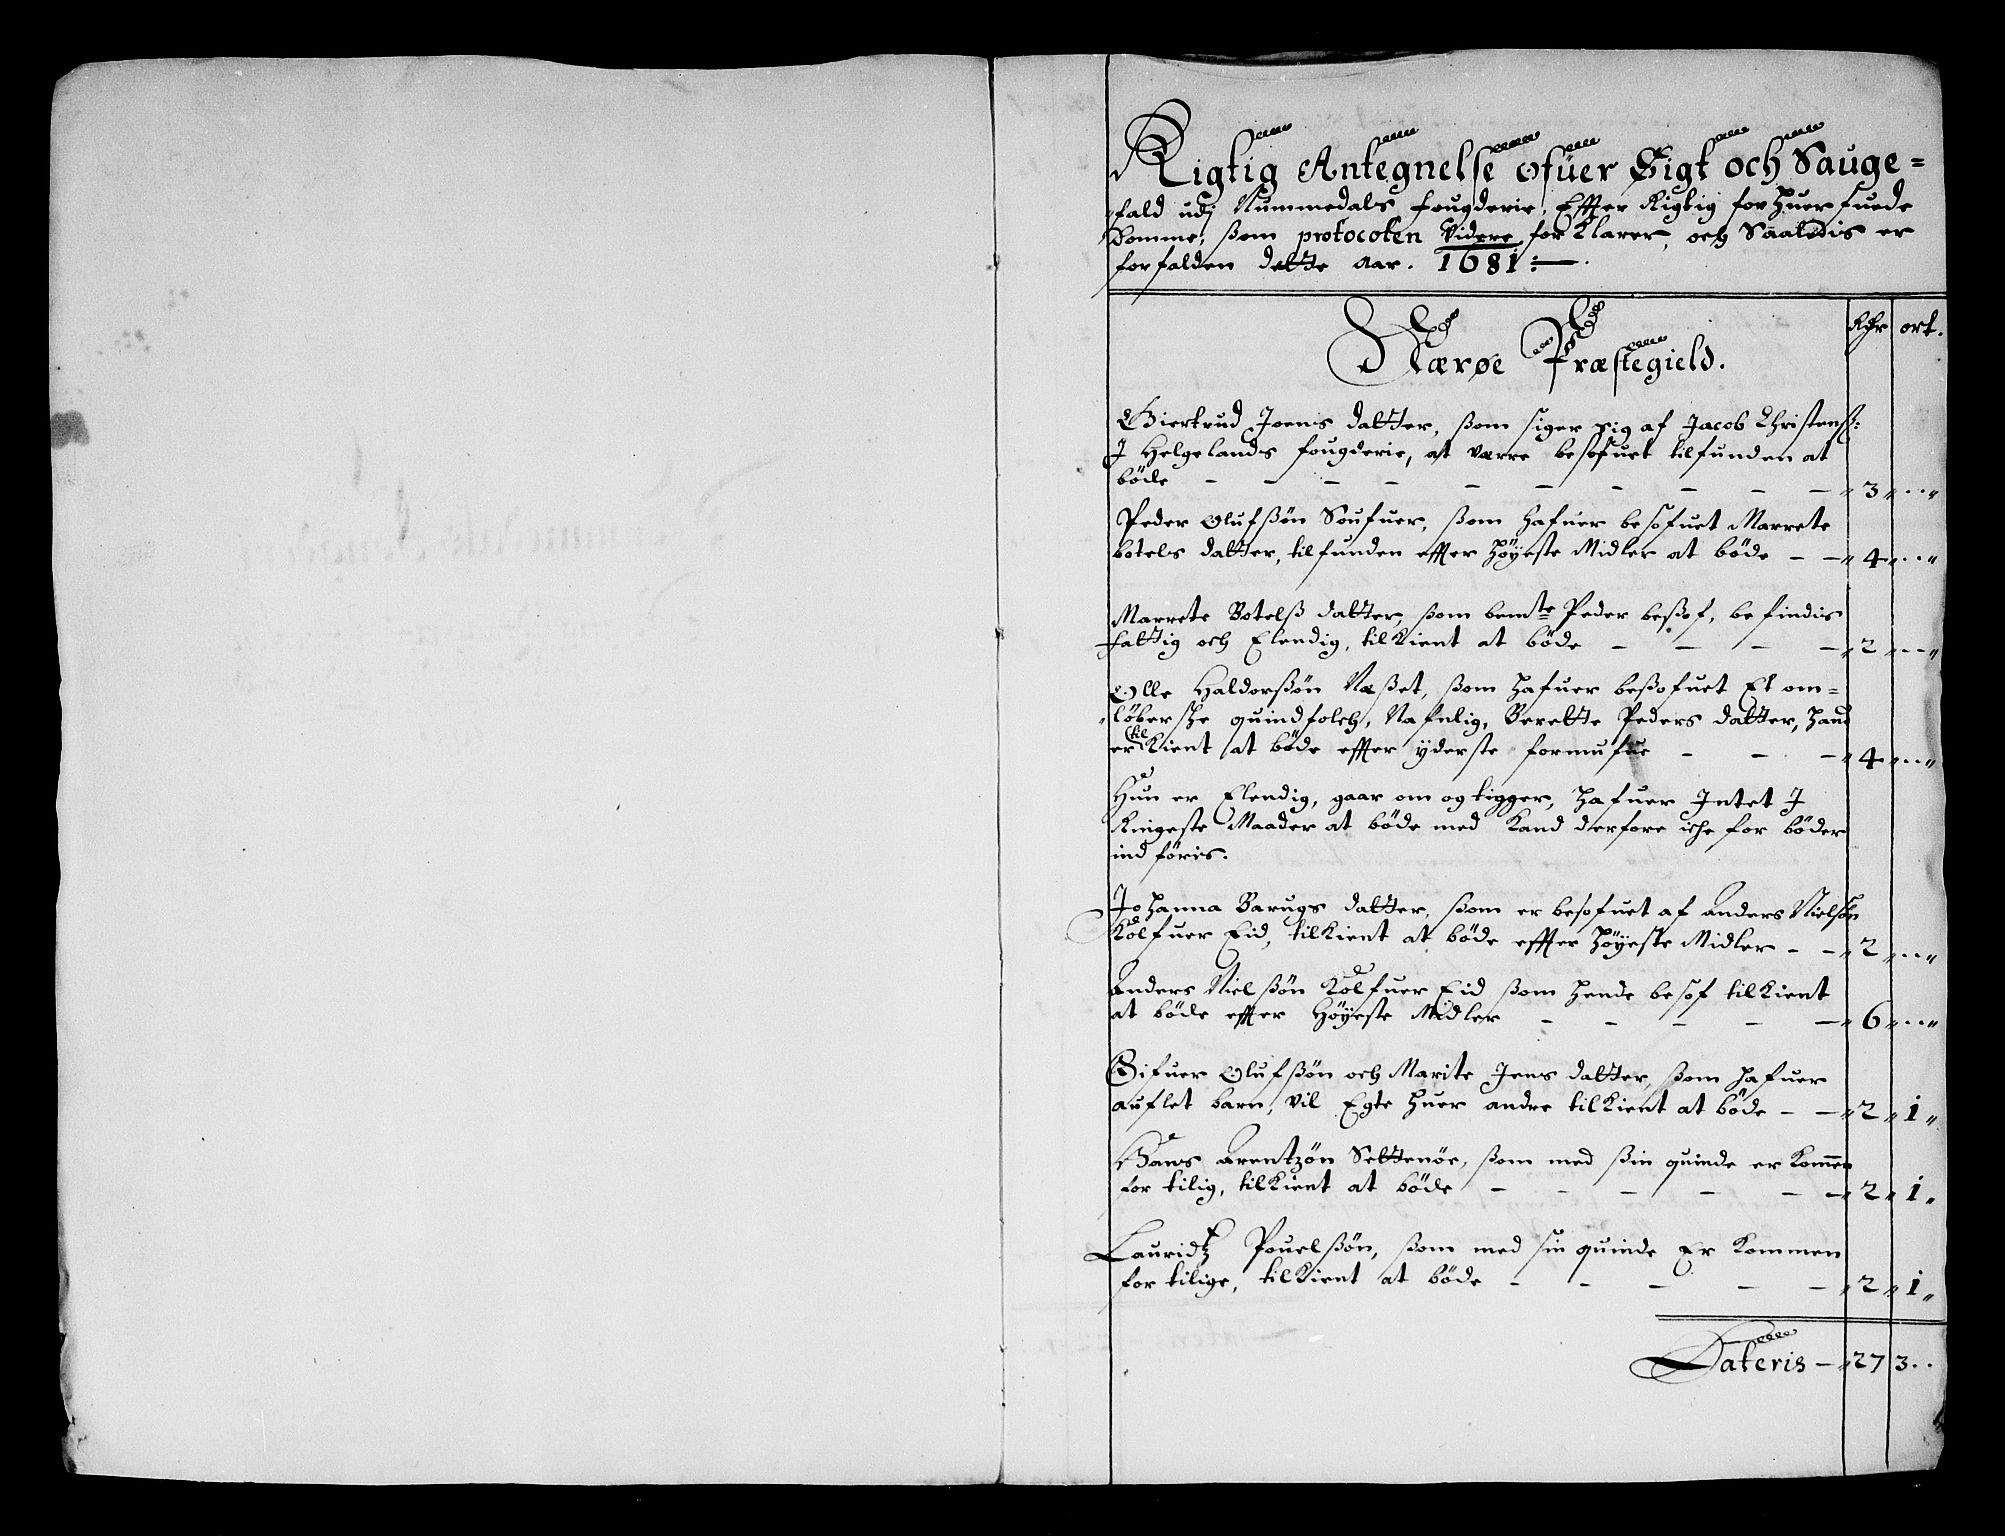 Rigtig Antegnelse ofuer Sigt och Sauge=
fald udj Nummedals fougderie, Effter Rigtig for huer fuede
Domme, ßom protocolen Videre for klarer, och Saaledis er
forfalden dette aar. 1681:
Rdr ort.
Nærøe Præstegield.
Giertrud Joens datter, ßom siger sig af Jacob Christenß:
J Helgelands fougderie, at verre besofuet tilfunden at
böde — — — — — — — — — „ 3 „ .. „
Peder Olufßön Soufuer, ßom hafuer besofuet Marrete
botels datter, tilfunden effter höyeste Midler at böde — — „ 4 „ .. „
Marrete Botelß datter, ßom bemte Peder beßof, befindis
fattig och Elendig, tilkient at böde — — — — „ 2 „ .. „
Olle Haldorßön Næßet, ßom hafuer beßofuet Et om=
löbersche quindfolch, Nafnlig, Berette Peders datter, hand
er til kient at böde effter yderste formufue — — — „ 4 „ .. „
Hun er Elendig, gaar om og tigger, hafuer Intet J
Ringeste Maader at böde med kand derfore iche for böder
ind föris.
Johanna Barugs datter, ßom er besofuet af Anders Nielsön
Kolfuer Eid, tilkient at böde effter höyeste Midler — — „ 2 „ .. „
Anders Nielßön Kolfuer Eid ßom hende besof tilkient
at böde effter Höyeste Midler — — — — — „ 6 „ .. „
Sifuer Olufßön och Marite Jens datter, ßom hafuer
auflet barn, vil Egte huer andre tilkient at böde — — „ 2 „ 1 „
Hans Arentzön Settenöe, ßom med ßin quinde er kommen
for tilig, tilkient at böde — — — — — — „ 2 „ 1 „
Lauridtz Pouelßön, ßom med sin quinde Er kommen
for tilige, tilkient at böde — — — — — „ 2 „ 1 „
Lateris — „ 27 3 ..